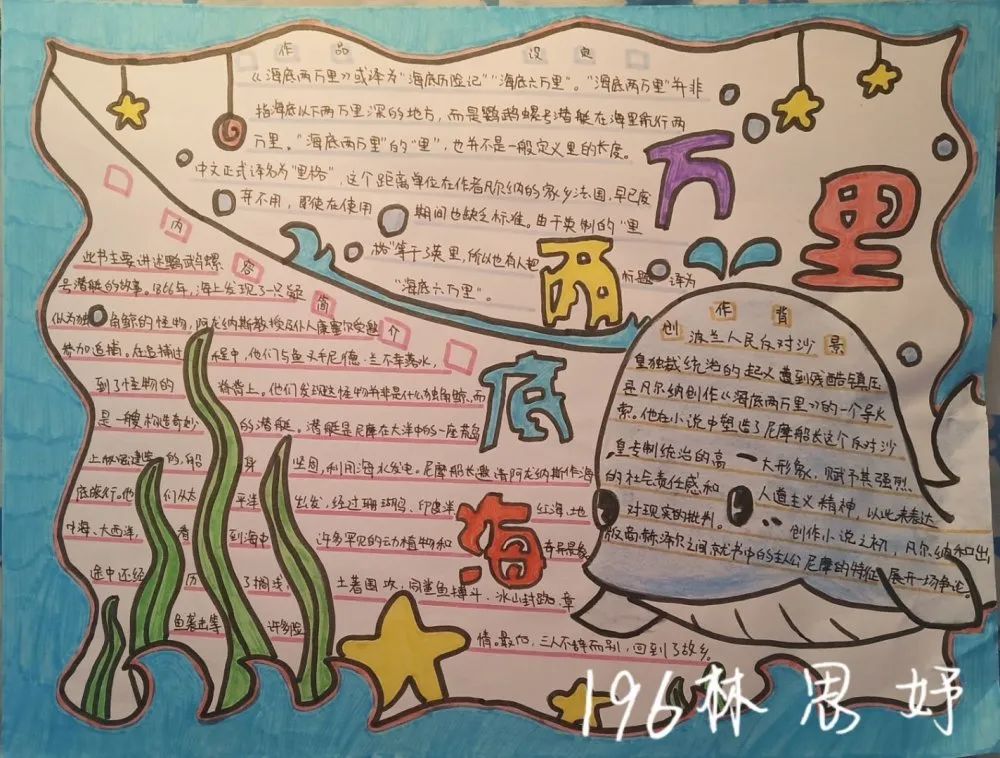 作品设定
《海底两万里》或译为“海底历险记”“海底六万里”。“海底两万里”并非
指海底以下两万里深的地方，而是鹦鹉螺号潜艇在海里航行两
万里。“海底两万里”的“里”，也并不是一般定义里的长度。
中文正式译名为“里格”，这个距离单位在作者凡尔纳的家乡法国，早已废
弃不用，即使在使用期间也缺乏标准。由于英制的“里
格”等于3英里，所以也有人把标题译为
“海底六万里”。
海底两万里
内容简介
此书主要讲述鹦鹉螺
号潜艇的故事。1866年，海上发现了一只疑
似为独角鲸的怪物，阿龙纳斯教授及仆人康塞尔受邀
参加追捕。在追捕过程中，他们与鱼叉手尼德·兰不幸落水，
到了怪物的脊背上。他们发现这怪物并非是什么独角鲸，而
是一艘构造奇妙的潜艇。潜艇是尼摩在大洋中的一座荒岛
上秘密建造的，船身坚固，利用海水发电。尼摩船长邀请阿龙纳斯作海
底旅行。他们从太平洋出发，经过珊瑚岛、印度洋、红海、地
中海、大西洋，看到海中许多罕见的动植物和奇异景象。
途中还经历了搁浅、土著围攻、同鲨鱼搏斗、冰山封路、章
鱼袭击等许多险
情。最后，三人不辞而别，回到了故乡。
创作背景
波兰人民反对沙
皇独裁统治的起义遭到残酷镇压
是凡尔纳创作《海底两万里》的一个导火
索。他在小说中塑造了尼摩船长这个反对沙
皇专制统治的高大形象，赋予其强烈
的社会责任感和人道主义精神，以此来表达
对现实的批判。创作小说之初，凡尔纳和出
版商赫泽尔之间就书中的主人公尼摩的特征展开一场争论。
196林思妤